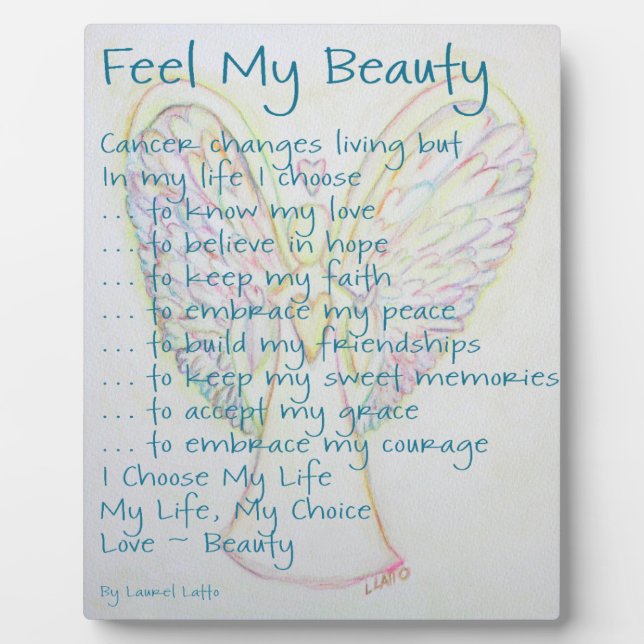 Feel My Beauty
Cancer changes living but
In my life I choose
... to know my love
... to believe in hope
... to keep my faith
... to embrace my peace
... to build my friendships
... to keep my sweet memories
... to accept my grace
... to embrace my courage
I Choose My Life
My Life, My Choice
Love ~ Beauty
L LATTO
By Laurel Latto